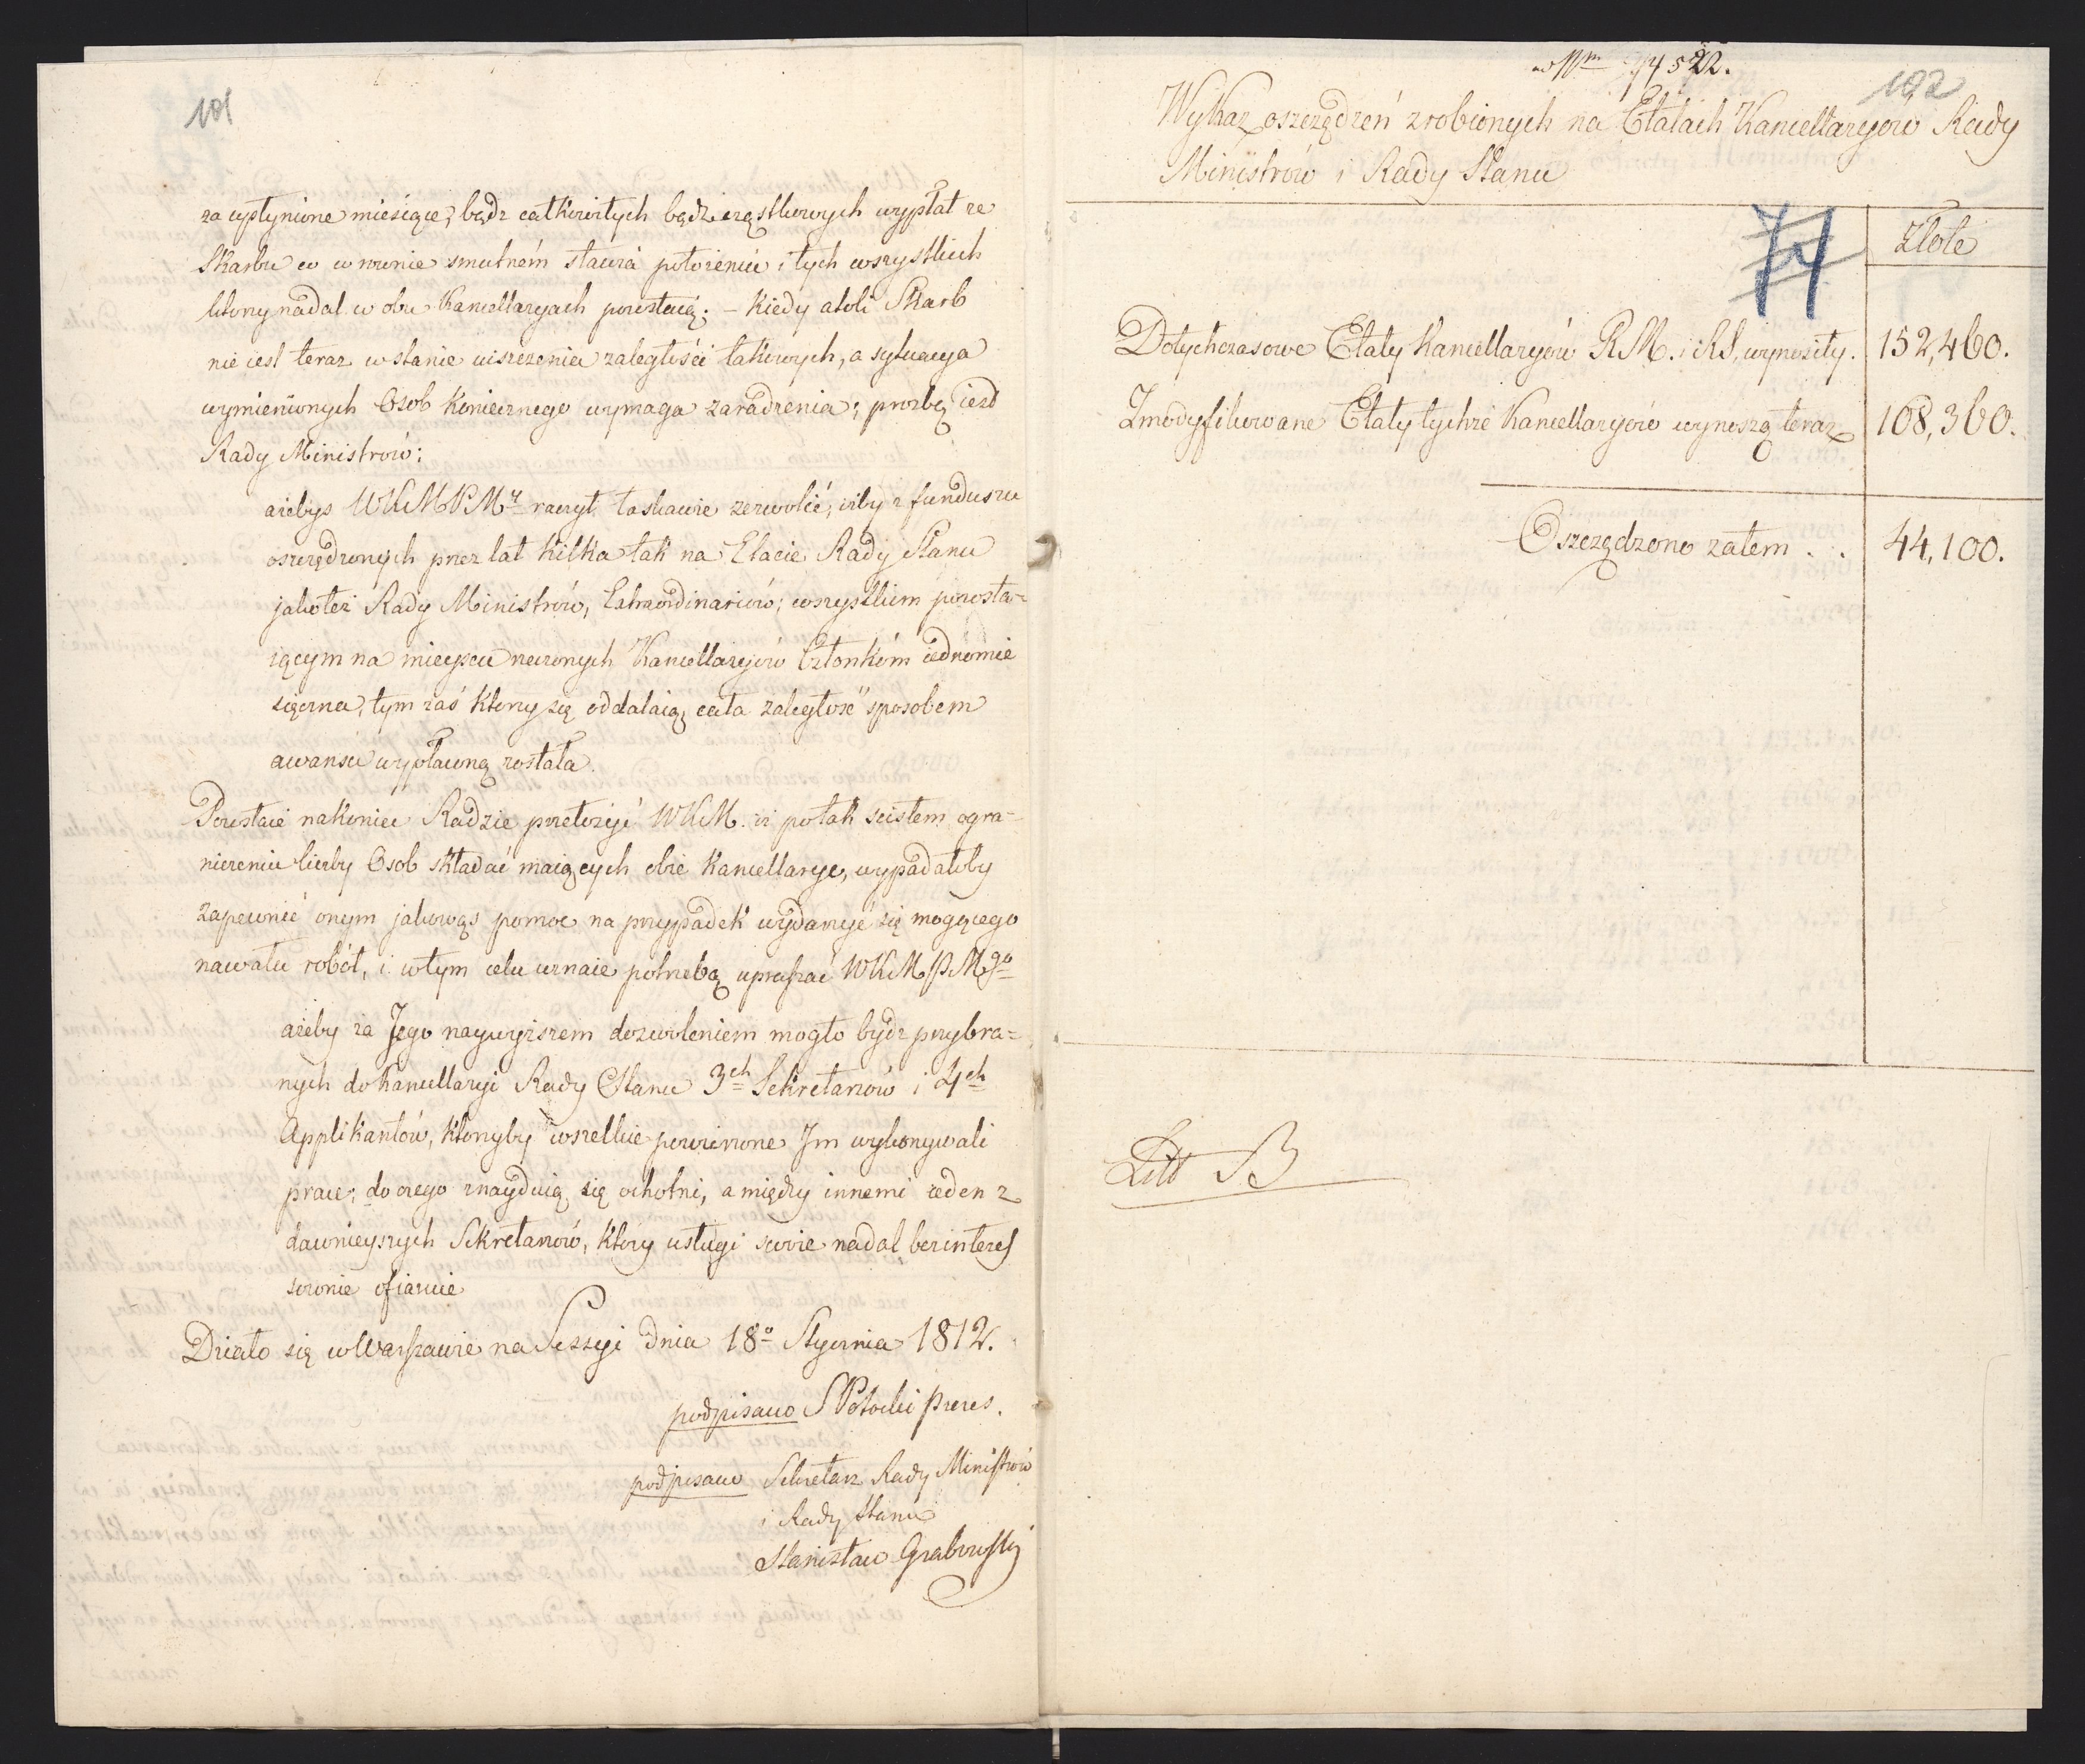 101
za upłynione miesiące, bądz całkowitych bądz cząstkowych wypłat ze
Skarbu co w równie smutném stawia położeniu i tych wszystkich
którzy nadal w obu Kancellaryach pozostaią. - Kiedy atoli Skarb
nie iest teraz w stanie uiszczenia zaległości takowych, a sytuacya
wymienionych Osob koniecznego wymaga zaradzenia; prozbą iest
Rady Ministrów;
ażebyś WKMPMy raczył łaskawie zezwolić, iżby z funduszu
oszczędzonych przez lat kilka tak na Etacie Rady Stanu
jakoteż Rady Ministrów, Extraordinariów; wszystkiem pozosta=
iącym na mieyscu rzeczonych Kancellaryów Członkóm iednomie
sięczna, tym zaś którzy się oddalaią, cała zaległość sposobem
awansu wypłaconą została.
Pozostaie nakoniec Radzie przełożyć WKM. iż po tak scisłem ogra=
niczeniu liczby Osob składać maiących obie Kancellarye, wypadałoby
zapewnić onym jakowąś pomoc na przypadek wydarzyć się mogącego
nawału robót, i w tym celu uznaie potrzebę upraszać WKMPMgo
ażeby za Jego naywyższem dozwoleniem mogło bydz przybra=
nych do Kancellaryi Rady Stanu 3ch Sekretarzów i 4ch
Applikantów, którzyby wszelkie powierzone Jm wykonywali
prace; do czego znayduią się ochotni, a między innemi ieden z
dawnieyszych Sekretarzów, który usługi swoie nadal bezinteres
sownie ofiaruie
Działo się w Warszawie na Sessyi dnia 18o Stycznia 1812.
podpisano S Potocki Prezes.
podpisano Sekretarz Rady Ministrów
i Rady Stanu
Stanisław Grabowski
4522.
102
Wykaz oszczędzeń zrobionych na Etatach Kancellaryów Rady
Ministrów i Rady Stanu
74
Złote
Dotychczasowe Etaty Kancellaryów R.M. i RS, wynosiły. 152,460.
Zmodyfikowane Etaty tychże Kancellaryów wynoszą teraz 108,360.
Oszczędzono zatem . . 44,100.
Litt B